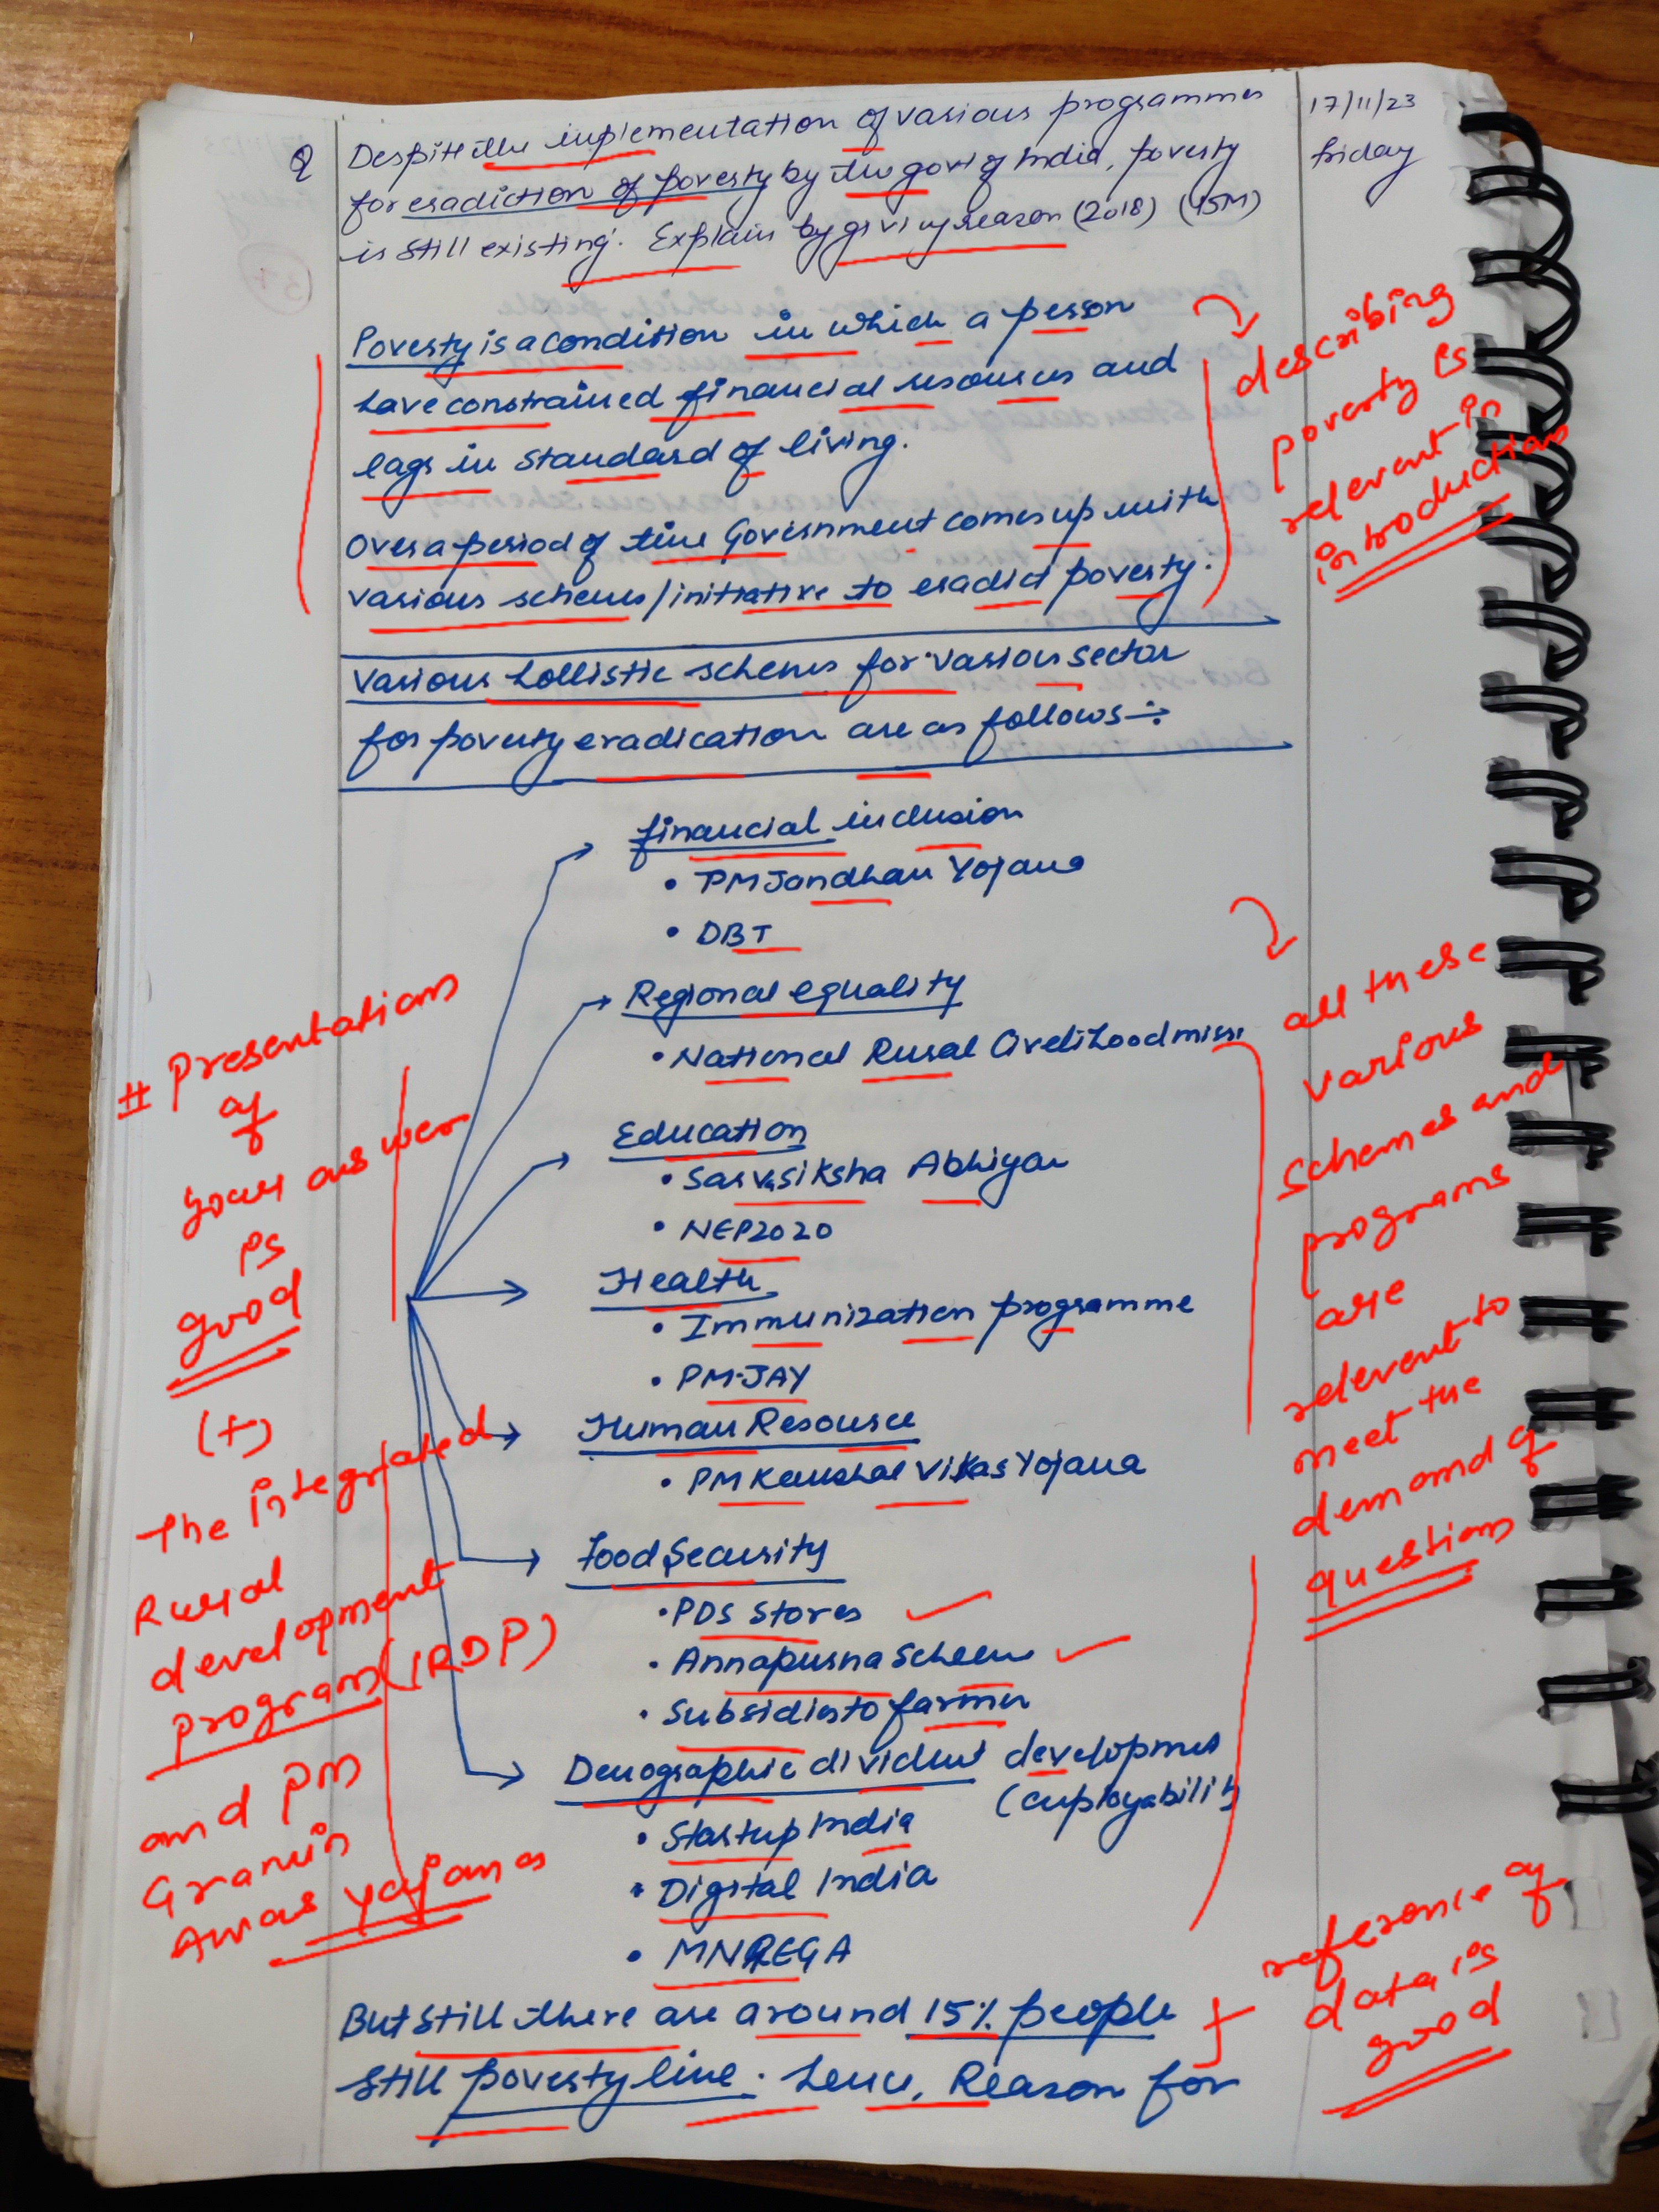 17/11/23
friday
Q Despite the implementation of various programmes
for eradiction of poverty by the govt of India, poverty
is still existing. Explain by giving reason (2018) (15M)
Poverty is a condition in which a person
have constrained financial resources and
lags in standard of living.
Over a period of time Government comes up with
various schemes/initiative to eradict poverty.
describing
poverty is
relevent in
introduction
Various hollistic schems for various sector
for poverty eradication are as follows:-
financial inclusion
• PM Jandhan Yojana
• DBT
Regional equality
• National Rural livelihood miss.
Education
• Sarvasiksha Abhiyan
• NEP2020
Health
• Immunization programme
• PM-JAY
Human Resource
• PM Kaushal Vikas Yojana
Food Security
• PDS stores
• Annapurna Scheme
• Subsidies to farmer
Demographic divident developmet
(employability)
• Startup India
• Digital India
• MNREGA
# Presentation
of
your answer
is
good
(+)
The integrated
Rural
development
program (IRDP)
and PM
Gramin
Awas Yojana
all these
various
schemes and
programs
are
relevent to
meet the
demand of
question
But still there are around 15% people
still poverty line. Hence, Reason for
reference of
data is
good